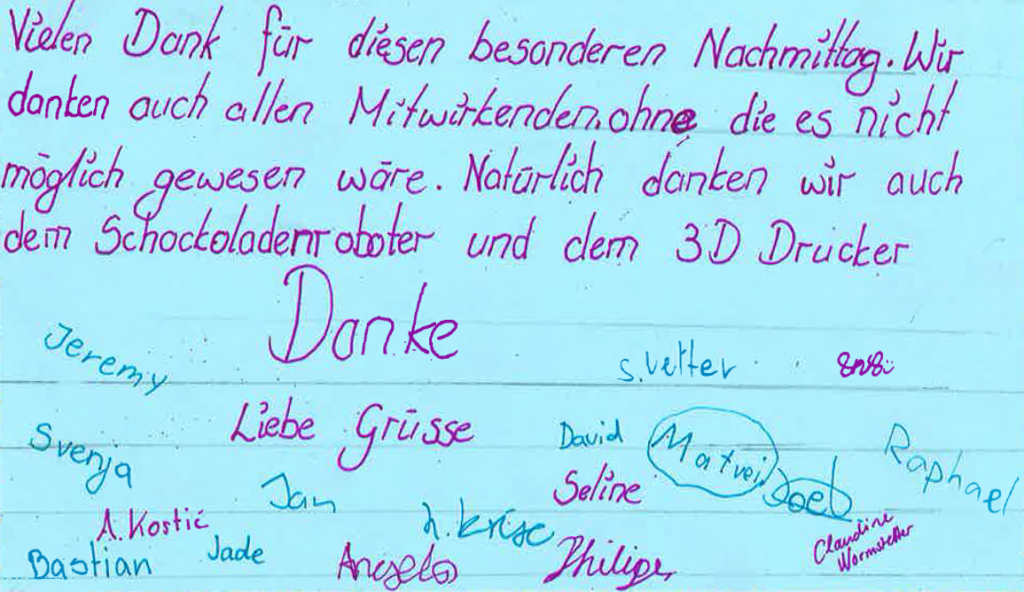 Vielen Dank für diesen besonderen Nachmittag. Wir
danken auch allen Mitwirkenden, ohne die es nicht
möglich gewesen wäre. Natürlich danken wir auch
dem Schockoladenroboter und dem 3D Drucker
Danke
Jeremy
S. Vetter
Liebe Grüsse
David
Matvei
Raphael
Svenja
Seline
Jan
Joel
A. Kostić
Claudine
Wormstetter
Bastian
Jade
Angelo
Philipp